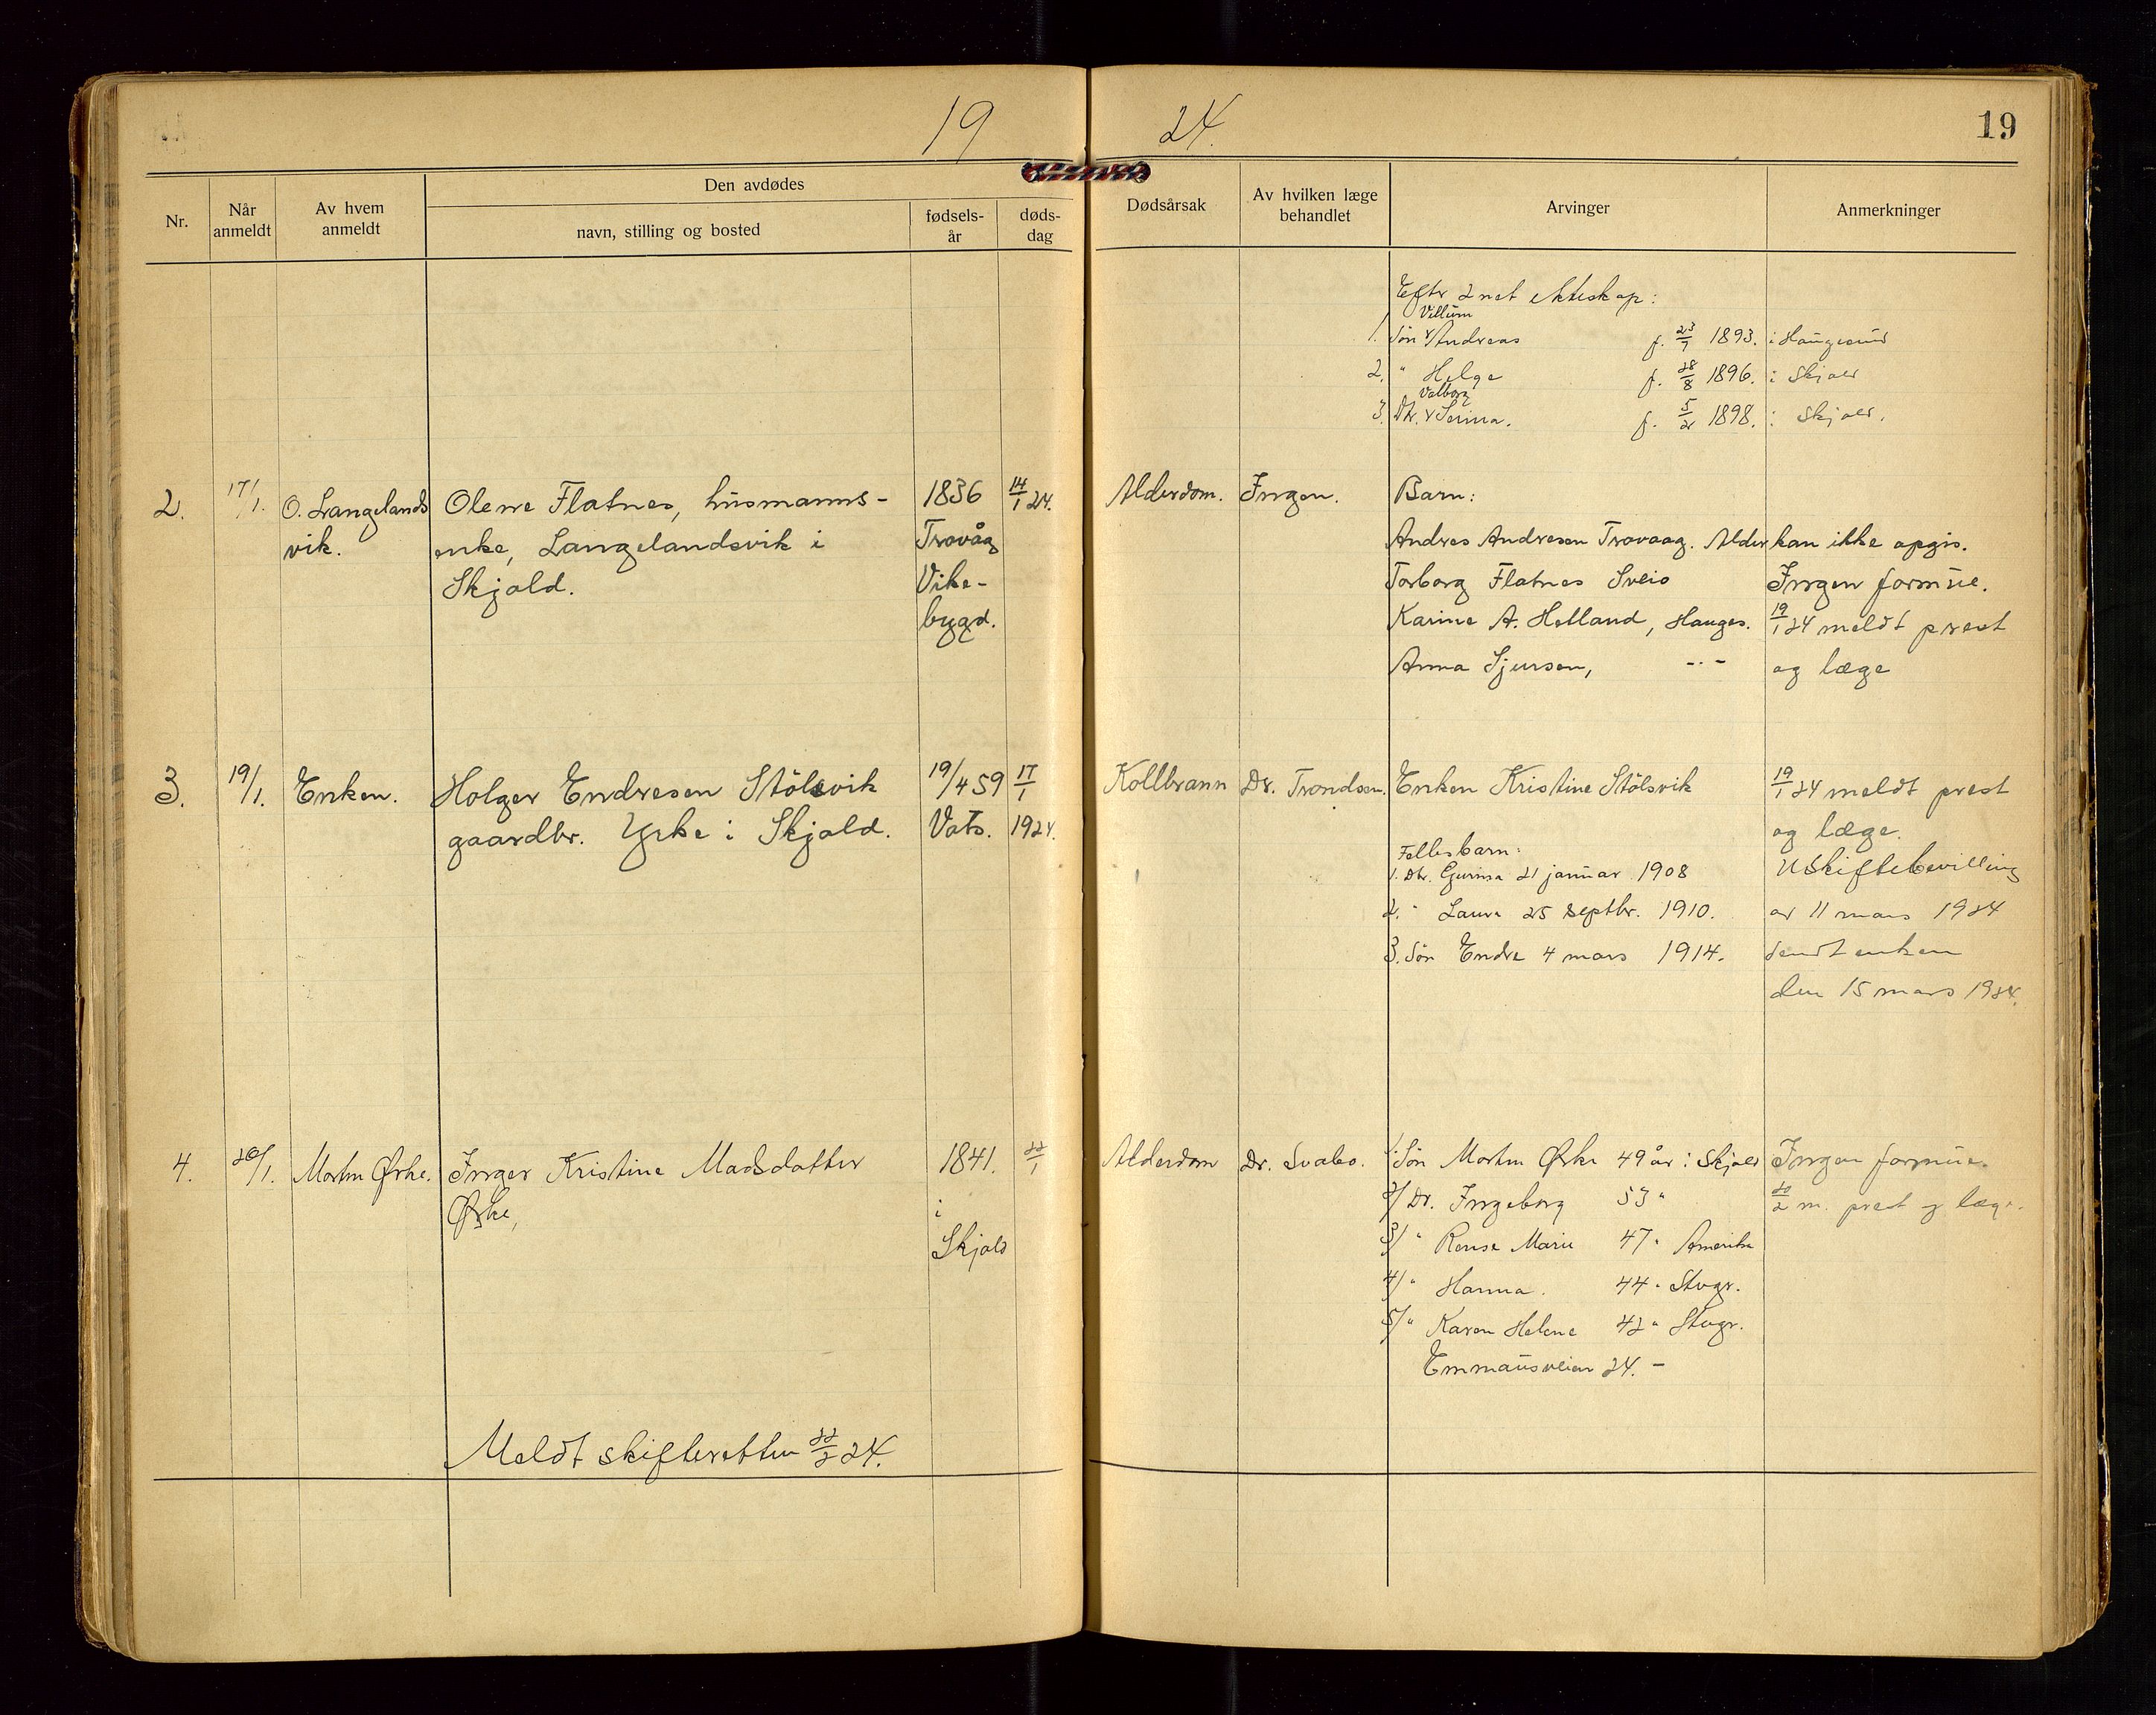 19 24.
19
Nr.
Når anmeldt
Av hvem anmeldt
Den avdødes
navn, stilling og bosted
fødsels-år
døds-dag
Dødsårsak
Av hvilken læge behandlet
Arvinger
Anmerkninger
Efter 2net ekteskap:
Villum
1. Søn Andreas f. 23/7 1893. i Haugesund
2. " Helge f. 28/8 1896. i Skjold
Valborg
3. Dtr. Serina. f. 5/2 1898. i Skjold.
2. 17/1. O. Langelands Olene Flatnes, husmanns- 1836 14/1 24. Alderdom. Ingen. Barn:
vik. enke, Langelandsvik i Trovåg Andres Andresen Trovaag. Alder kan ikke opgis.
Skjold. Vike- Torborg Flatnes Sveio Ingen formue.
bygd. Karine A. Helland, Hauges. 19/1 24 meldt prest
Anna Sjursen, -"- og læge
3. 19/1. Enken. Holger Endresen Stölsvik 19/4 59 17/1 Kollbrann Dr. Trondsen. Enken Kristine Stölsvik 19/1 24 meldt prest
gaardbr. Yrke i Skjold. Vats. 1924. og læge.
Fellesbarn:
1. Dtr. Gurina 21 januar 1908 Uskiftebevilling
2. " Laura 25 septbr. 1910. av 11 mars 1924
3. Søn Endre 4 mars 1914. sendt enken
den 15 mars 1924.
4. 20/1. Morten Ørke. Inger Kristine Madsdatter 1841. 22/1 Alderdom Dr. Svabo. 1. Søn Morten Ørke 49 år i Skjold Ingen formue.
Ørke, i 2/ Dr. Ingeborg 53 " 20/2 m. prest og læge.
Skjold 3/ " Rense Marie 47 " Amerika
4/ " Hanna. 44 " Stvgr.
5/ " Karen Helene 42 " Stvgr.
Emmausveien 24. -
Meldt skifteretten 22/2 24.